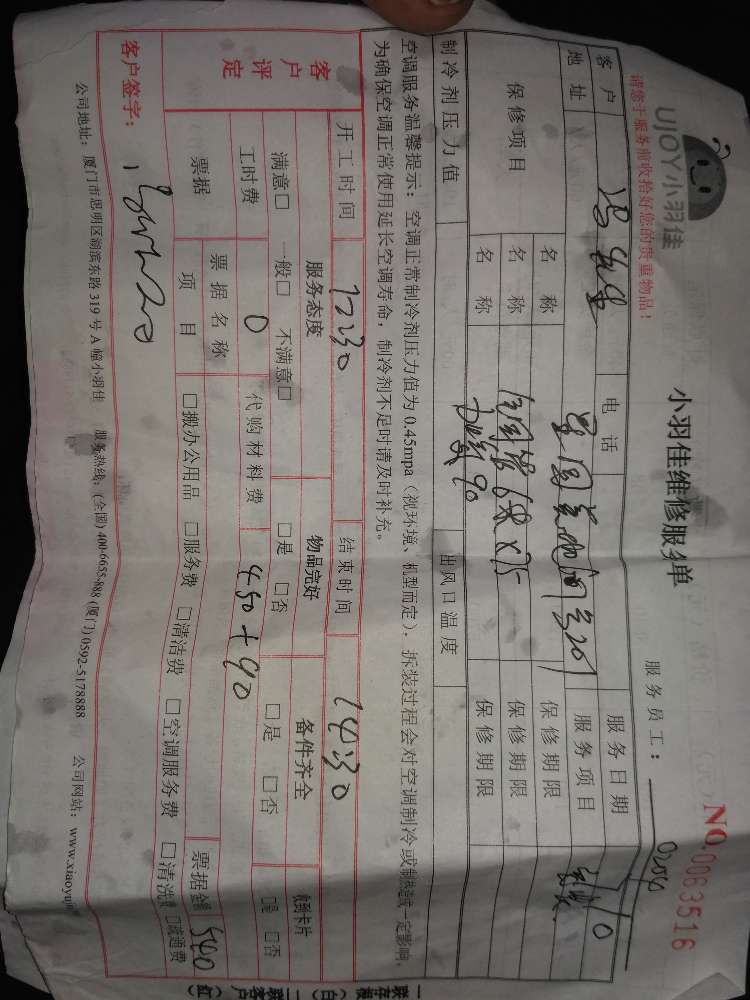 UJOY小羽佳
小羽佳维修服务单
NO.0063516
请您于服务前收拾好您的贵重物品!
服务员工:
客户 电话 服务日期
地址 服务项目
保修项目 名称 保修期限
名称 保修期限
名称 90 保修期限
制冷剂压力值 出风口温度
空调服务温馨提示:空调正常制冷剂压力值为0.45mpa(视环境、机型而定),拆装过程会对空调制冷或制热造成一定影响,
为确保空调正常使用延长空调寿命,制冷剂不足时请及时补充。
开工时间 12:30 结束时间 14:30
客户评定 服务态度 物品完好 备件齐全 收到卡片
满意□ 一般□ 不满意□ □是 □否 □是 □否 □是 □否
工时费 0 代购材料费 450+90
票据 票据名称 票据金额 540
项目 □搬办公用品 □服务费 □清洁费 □空调服务费 □清洗费 □疏通费
客户签字:
公司地址:厦门市思明区湖滨东路319号A幢小羽佳 服务热线:(全国)400-6655-888 (厦门)0592-5178888 公司网站:www.xiaoyujia